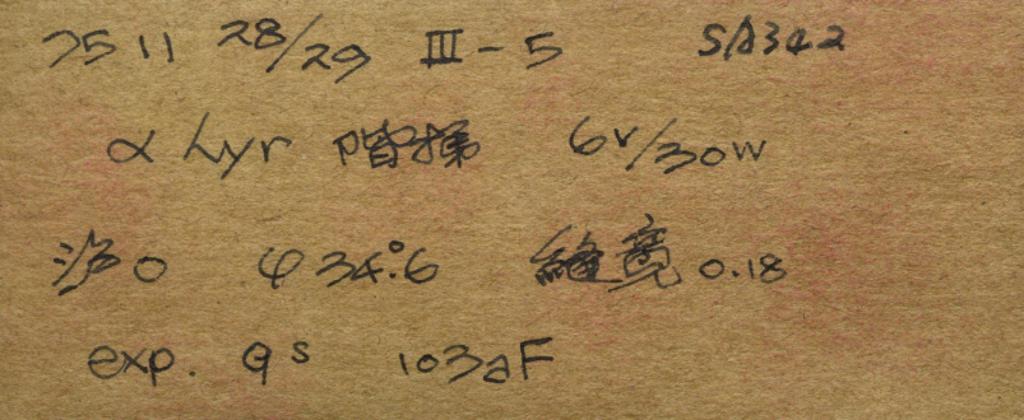 7511 28/29 III-5 SA342
α Lyr 階梯 6V/30W
0 φ 34°.6 縫寬 0.18
exp. 9s 103aF